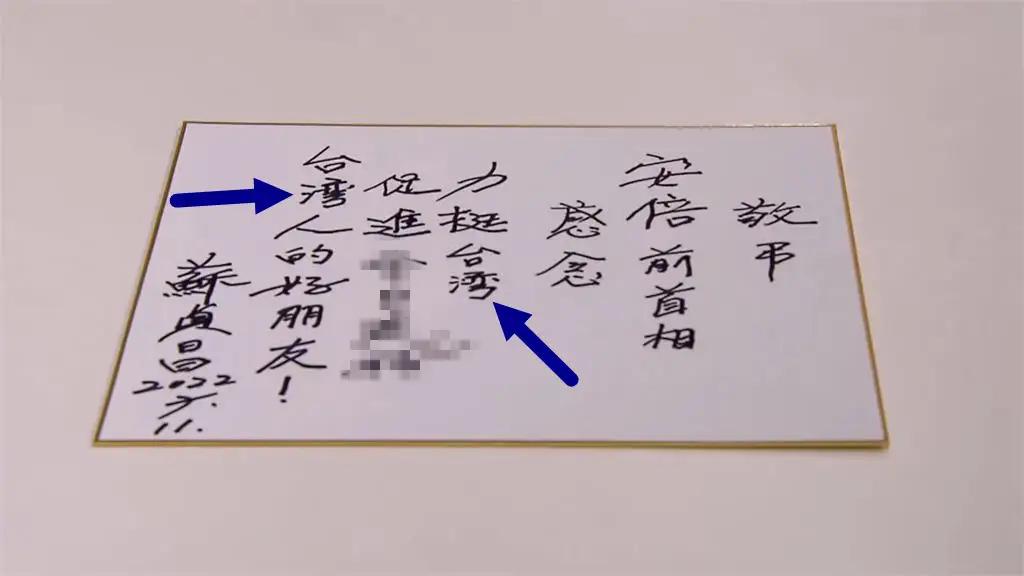 敬弔
安倍前首相
感念
力挺台湾
促進
台湾人的好朋友!
蘇貞昌
2022
7.
11.